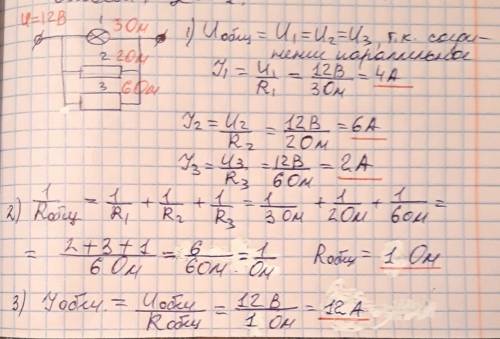 U=12В 1 3Ом
2 2Ом
3 6Ом
1) Uобщ = U1=U2=U3, т.к. соеди-
нение параллельное
I1 = U1/R1 = 12В/3Ом = 4А
I2 = U2/R2 = 12В/2Ом = 6А
I3 = U3/R3 = 12В/6Ом = 2А
2) 1/Rобщ = 1/R1 + 1/R2 + 1/R3 = 1/3Ом + 1/2Ом + 1/6Ом =
= 2+3+1/6Ом = 6/6Ом = 1/Ом Rобщ = 1 Ом
3) Iобщ. = Uобщ/Rобщ = 12В/1Ом = 12А